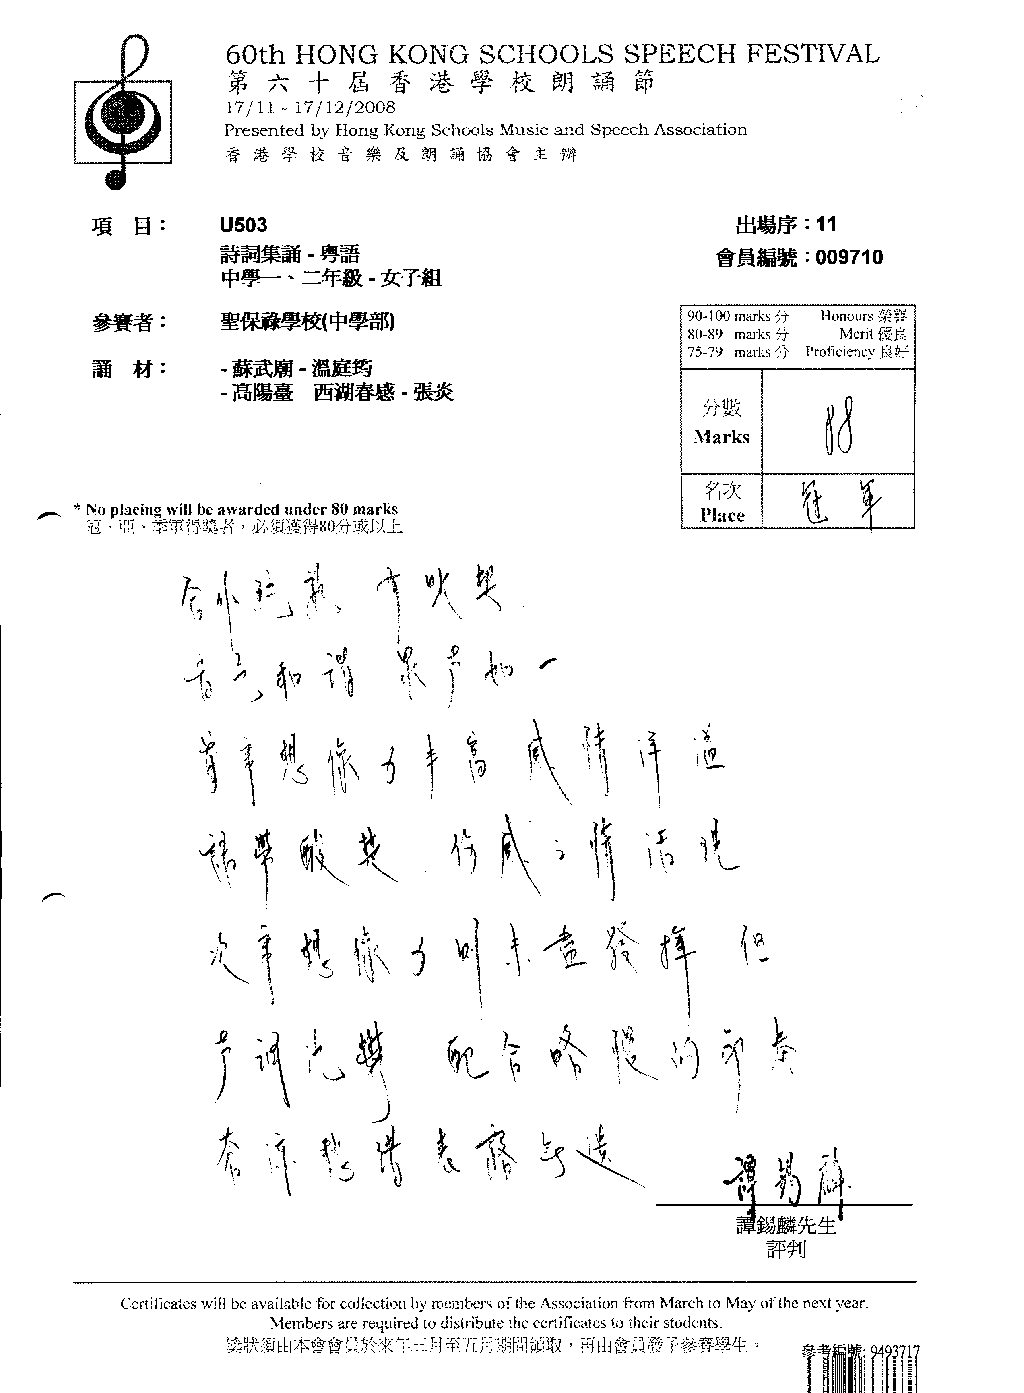 60th HONG KONG SCHOOLS SPEECH FESTIVAL
第六十屆香港學校朗誦節
17/11 - 17/12/2008
Presented by Hong Kong Schools Music and Speech Association
香港學校音樂及朗誦協會主辦
項 目： U503 出場序：11
詩詞集誦 - 粵語 會員編號：009710
中學一、二年級 - 女子組
參賽者： 聖保祿學校(中學部)
90-100 marks 分 Honours 榮譽
80-89 marks 分 Merit 優良
75-79 marks 分 Proficiency 良好
誦 材： - 蘇武廟 - 溫庭筠
- 高陽臺 西湖春感 - 張炎
分數
Marks 88
名次
Place 冠軍
* No placing will be awarded under 80 marks
冠、亞、季軍得獎者，必須獲得80分或以上
合作純熟 有默契
音色和諧 眾聲如一
首章想像力丰富 感情洋溢
傷感之情活現
次章想像力則未盡發揮 但
聲調 配合略慢的節奏
表露無遺
譚錫麟先生
評判
Certificates will be available for collection by members of the Association from March to May of the next year.
Members are required to distribute the certificates to their students.
獎狀須由本會會員於來年三月至五月期間領取，再由會員發予參賽學生。
參考編號: 9493717